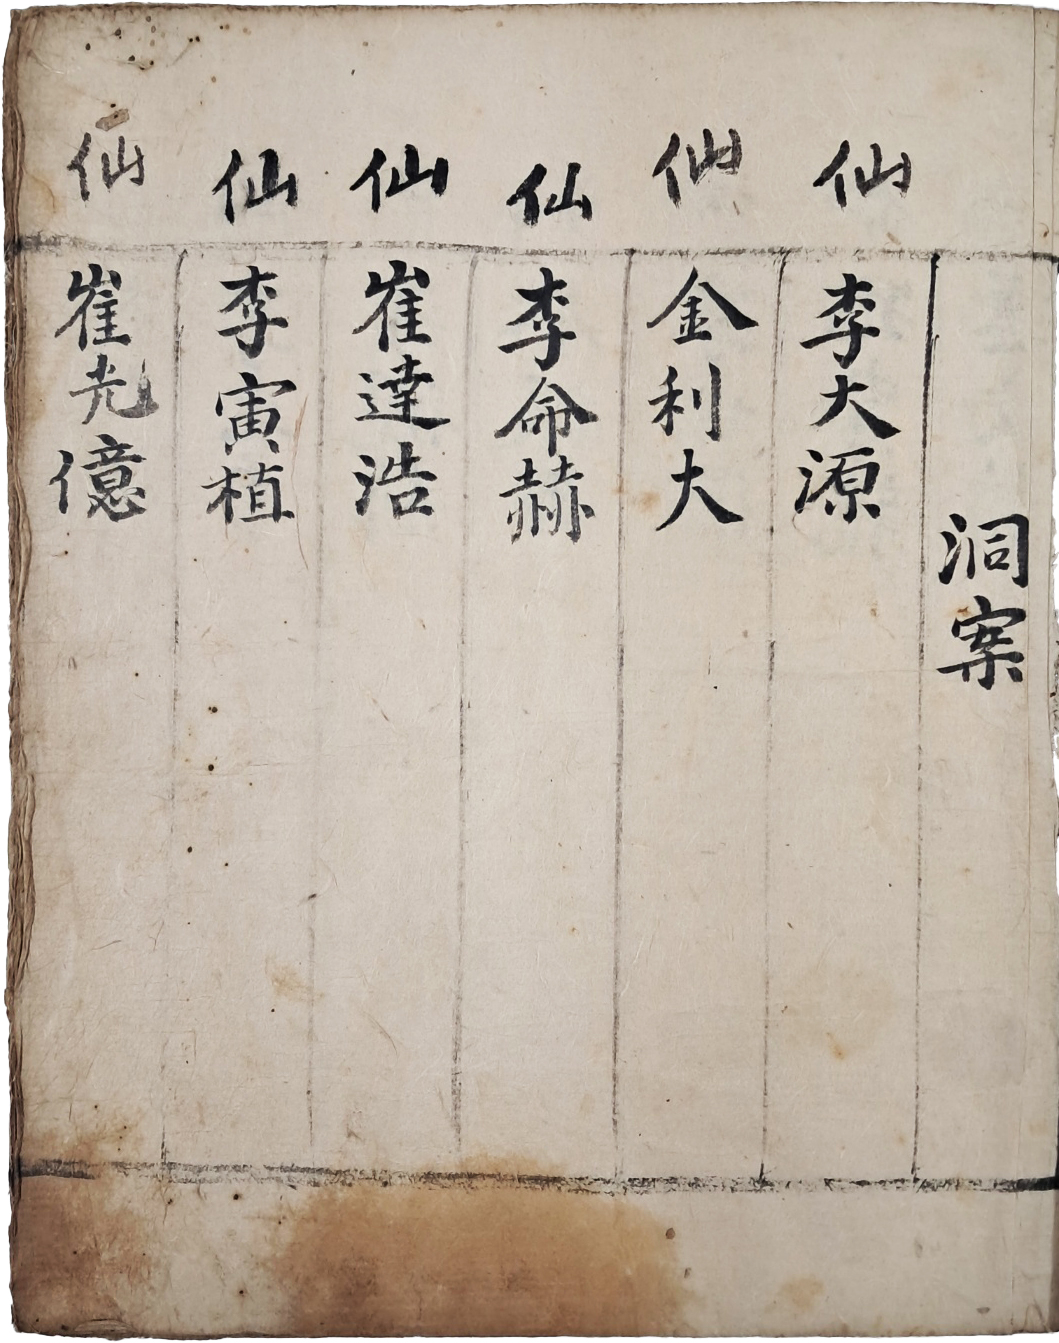 洞案
仙 李大源
仙 金利大
仙 李命赫
仙 崔達浩
仙 李寅植
仙 崔光億